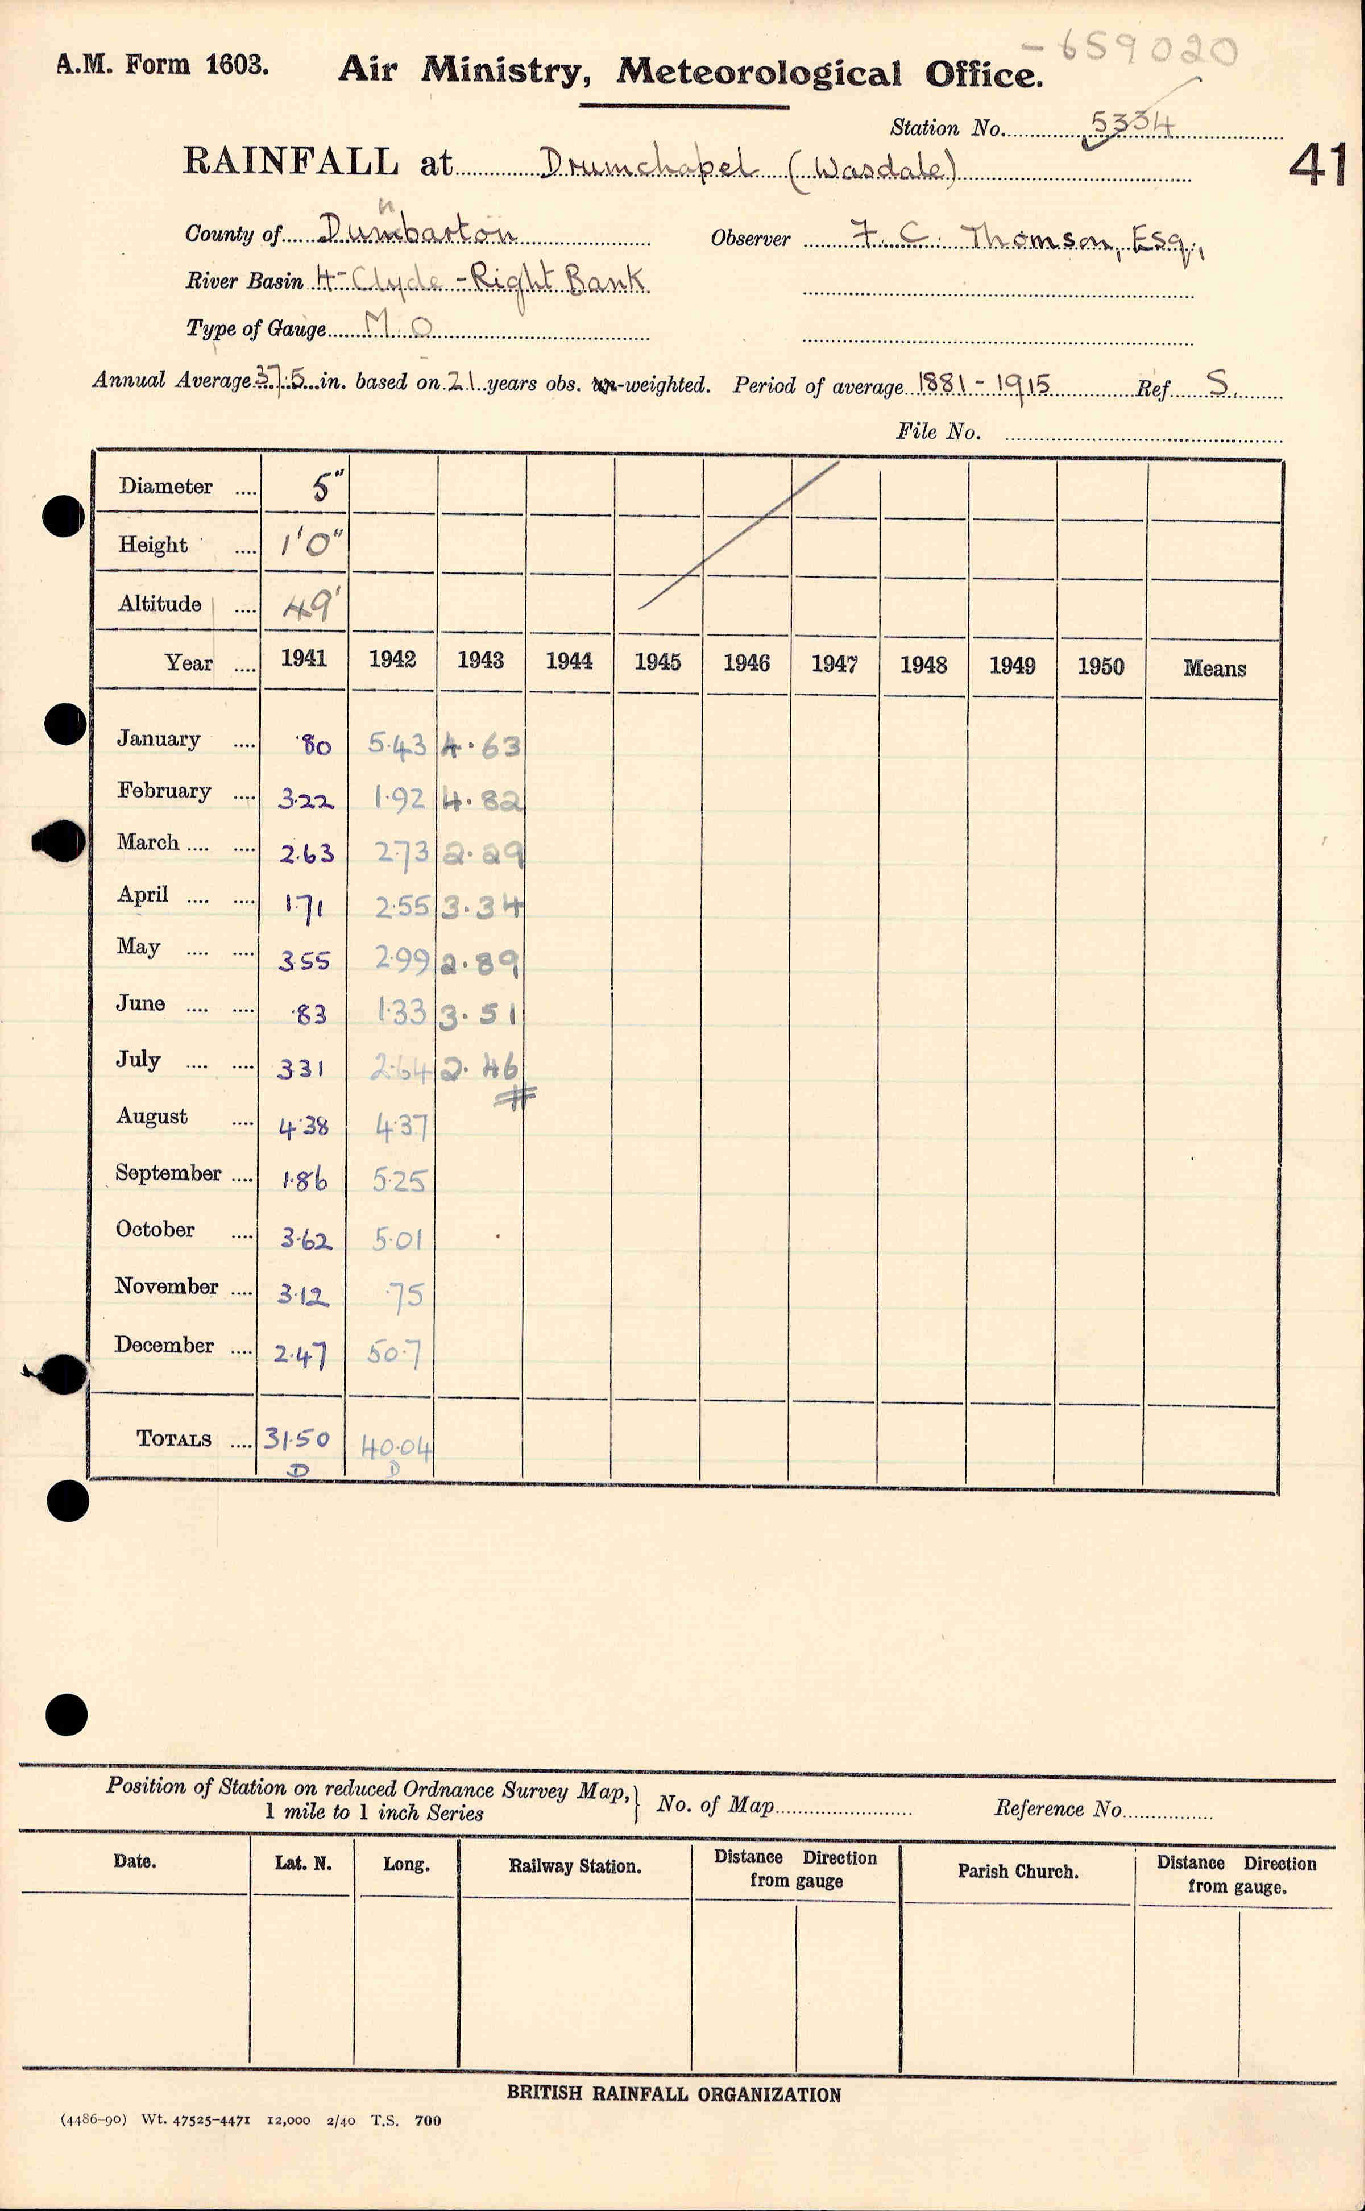 -659020
A.M. Form 1603. Air Ministry, Meteorological Office.
Station No. 5334
41
RAINFALL at Drumchapel (Wasdale)
County of Dumbarton Observer F. C. Thomson, Esq.,
n
River Basin 4-Clyde-Right Bank
Type of Gauge M O
Annual Average 37.5 in. based on 21 years obs. un-weighted. Period of average 1881-1915 Ref S.
File No.
Diameter .... 5"
Height .... 1'0"
Altitude .... 49'
Year .... 1941 1942 1943 1944 1945 1946 1947 1948 1949 1950 Means
January .... ·80 5·43 4·63
February .... 3·22 1·92 4·82
March .... .... 2·63 2·73 2·29
April .... .... 1·71 2·55 3·34
May .... .... 3·55 2·99 2·89
June .... .... ·83 1·33 3·51
July .... .... 3·31 2·64 2·46
August .... 4·38 4·37
September .... 1·86 5·25
October .... 3·62 5·01
November .... 3·12 ·75
December .... 2·47 50·7
TOTALS .... 31·50 40·04
D D
Position of Station on reduced Ordnance Survey Map,} No. of Map Reference No.
1 mile to 1 inch Series
Date. Lat. N. Long. Railway Station. Distance Direction from gauge Parish Church. Distance Direction from gauge.
BRITISH RAINFALL ORGANIZATION
(4486-90) Wt. 47525-4471 12,000 2/40 T.S. 700